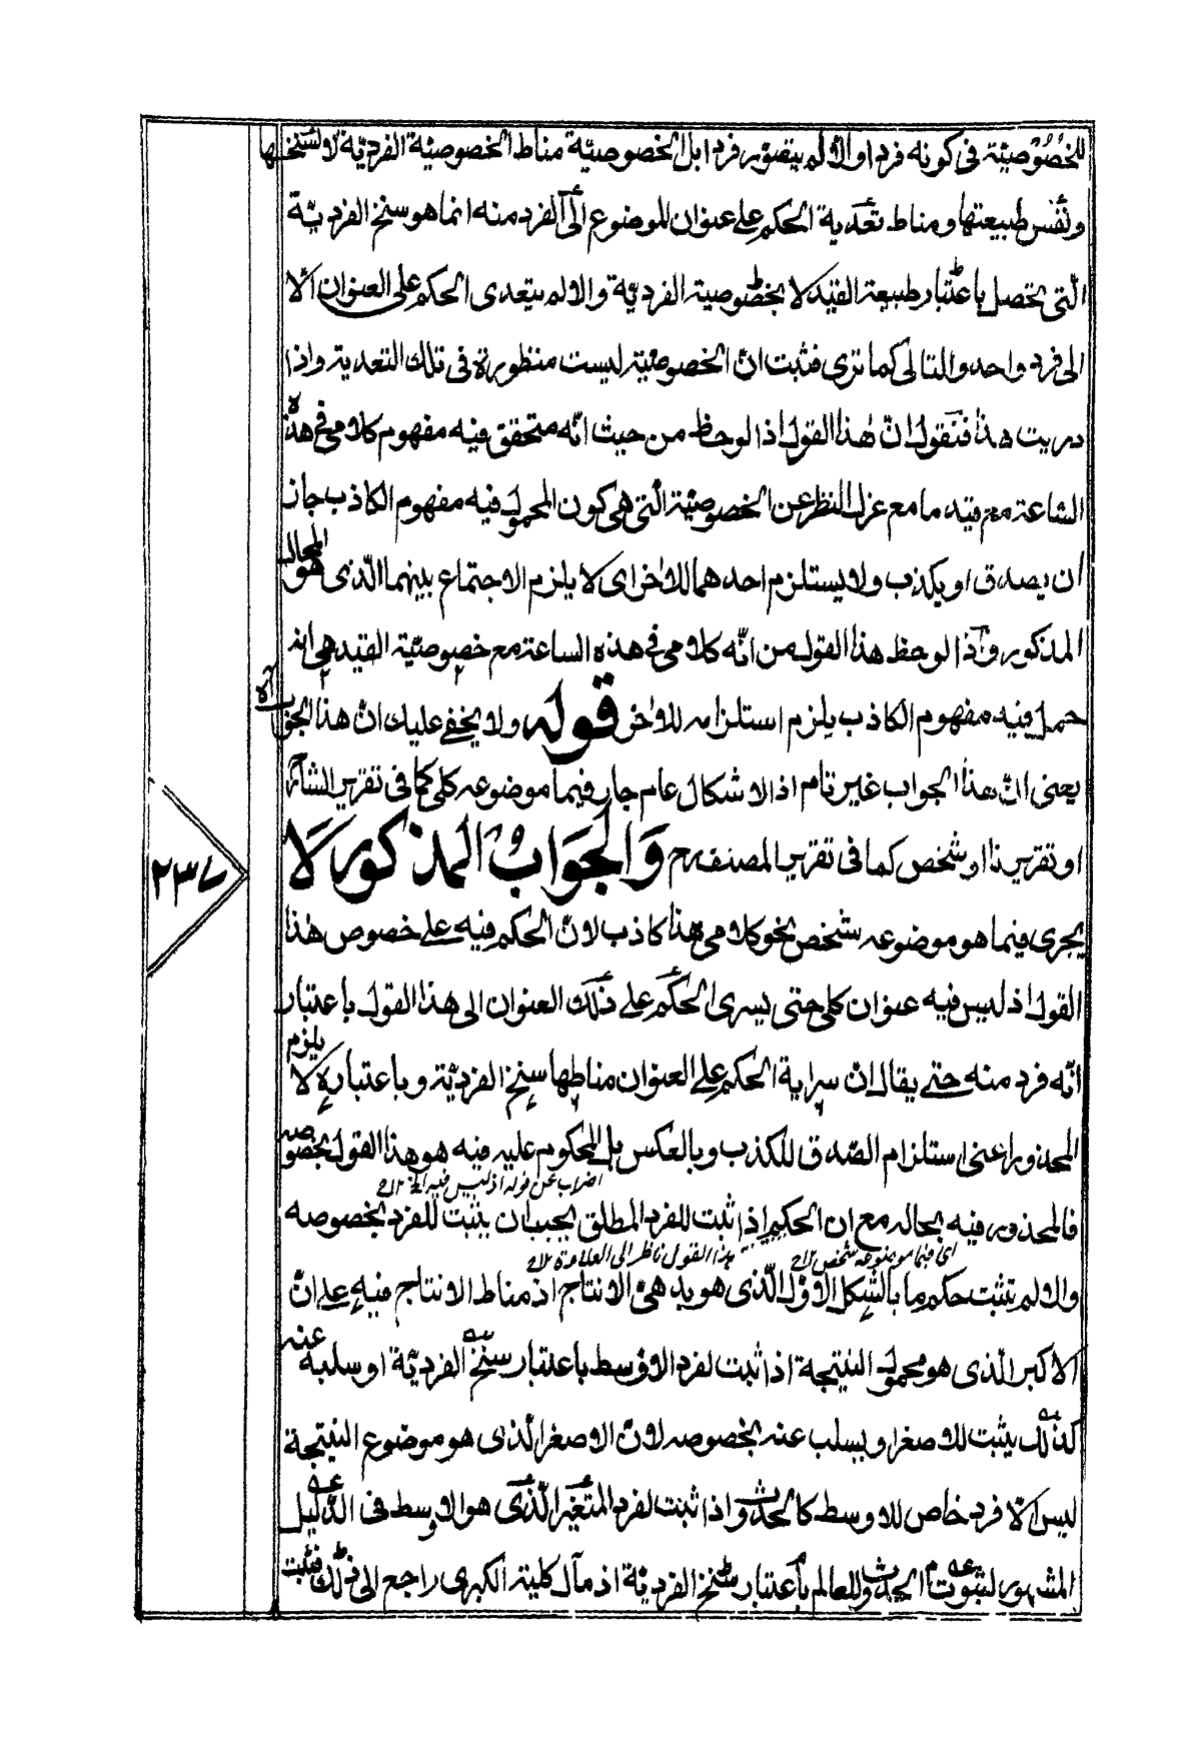 للخصوصيّة فى كونه فردا والّا لم يتصوّر فردا بل الخصوصيّة مناط الخصوصيّة الفرديّة لا لسنخها
ونفس طبيعتها ومناط تعدية الحكم على عنوان الموضوع الى الفرد منه انما هو سنخ الفرديّة
الّتى تحصل باعتبار طبيعة القيد لا بخصوصية الفرديّة والا لم يتعدى الحكم على العنوان الّا
الى فرد واحد والتالى كما ترى فثبت انّ الخصوصيّة ليست منظورة فى تلك التعدية واذا
دريت هذا فنقول انّ هذا القول اذا لوحظ من حيث انّه متحقق فيه مفهوم كلامى فى هذه
الساعة مع قيد ما مع عزل النظر عن الخصوصيّة الّتى هى كون المحمول فيه مفهوم الكاذب جاز
ان يصدق او يكذب ولا يستلزم احدهما للاخر اى لا يلزم الاجتماع بينهما الّذى هو المحال
المذكور واذا لوحظ هذا القول من انّه كلامى فى هذه الساعة مع خصوصيّة القيد هى انه
حمل فيه مفهوم الكاذب يلزم استلزامه للاخر قوله ولا يخفى عليك انّ هذا الجواب آه
يعنى انّ هذا الجواب غير تام اذ الاشكال عام جار فيما موضوعه كلى كما فى تقرير الشارح
او تقرير نا او شخص كما فى تقرير المصنف رح والجواب المذكور لا
يجرى فيما هو موضوعه شخص نحو كلامى هذا كاذب لانّ الحكم فيه على خصوص هذا
القول اذ ليس فيه عنوان كلى حتى يسرى الحكم على ذلك العنوان الى هذا القول باعتبار
انّه فرد منه حتى يقال انّ سراية الحكم على العنوان مناطها سنخ الفرديّة وباعتباره لا يلزم
المحذور اعنى استلزام الصّدق للكذب وبالعكس بل المحكوم عليه فيه هو هذا القول بخصوصه
اضراب عن قوله اذ ليس فيه الخ ١٢
فالمحذور فيه بحاله مع ان الحكم اذا ثبت للفرد المطلق يجب ان يثبت للفرد بخصوصه
اى فيما موضوعه شخص ١٢ هذا القول ناظر الى العلاوة ١٢
والا لم يثبت حكم ما بالشكل الاوّل الّذى هو بديهىّ الانتاج اذ مناط الانتاج فيه على انّ
الاكبر الّذى هو محمول النتيجة اذا ثبت لفرد الاوسط باعتبار سنخ الفرديّة او سلبه عنه
كذلك يثبت للاصغر او يسلب عنه بخصوصه لانّ الاصغر الّذى هو موضوع النتيجة
ليس الّا فرد خاص للاوسط كالحدوث اذا ثبت لفرد المتغيّر الّذى هو الاوسط فى الدّليل
المشهور لثبوت الحدوث للعالم باعتبار سنخ الفرديّة اذ مآل كلية الكبرى راجع الى ذلك فثبت
٢٣٧